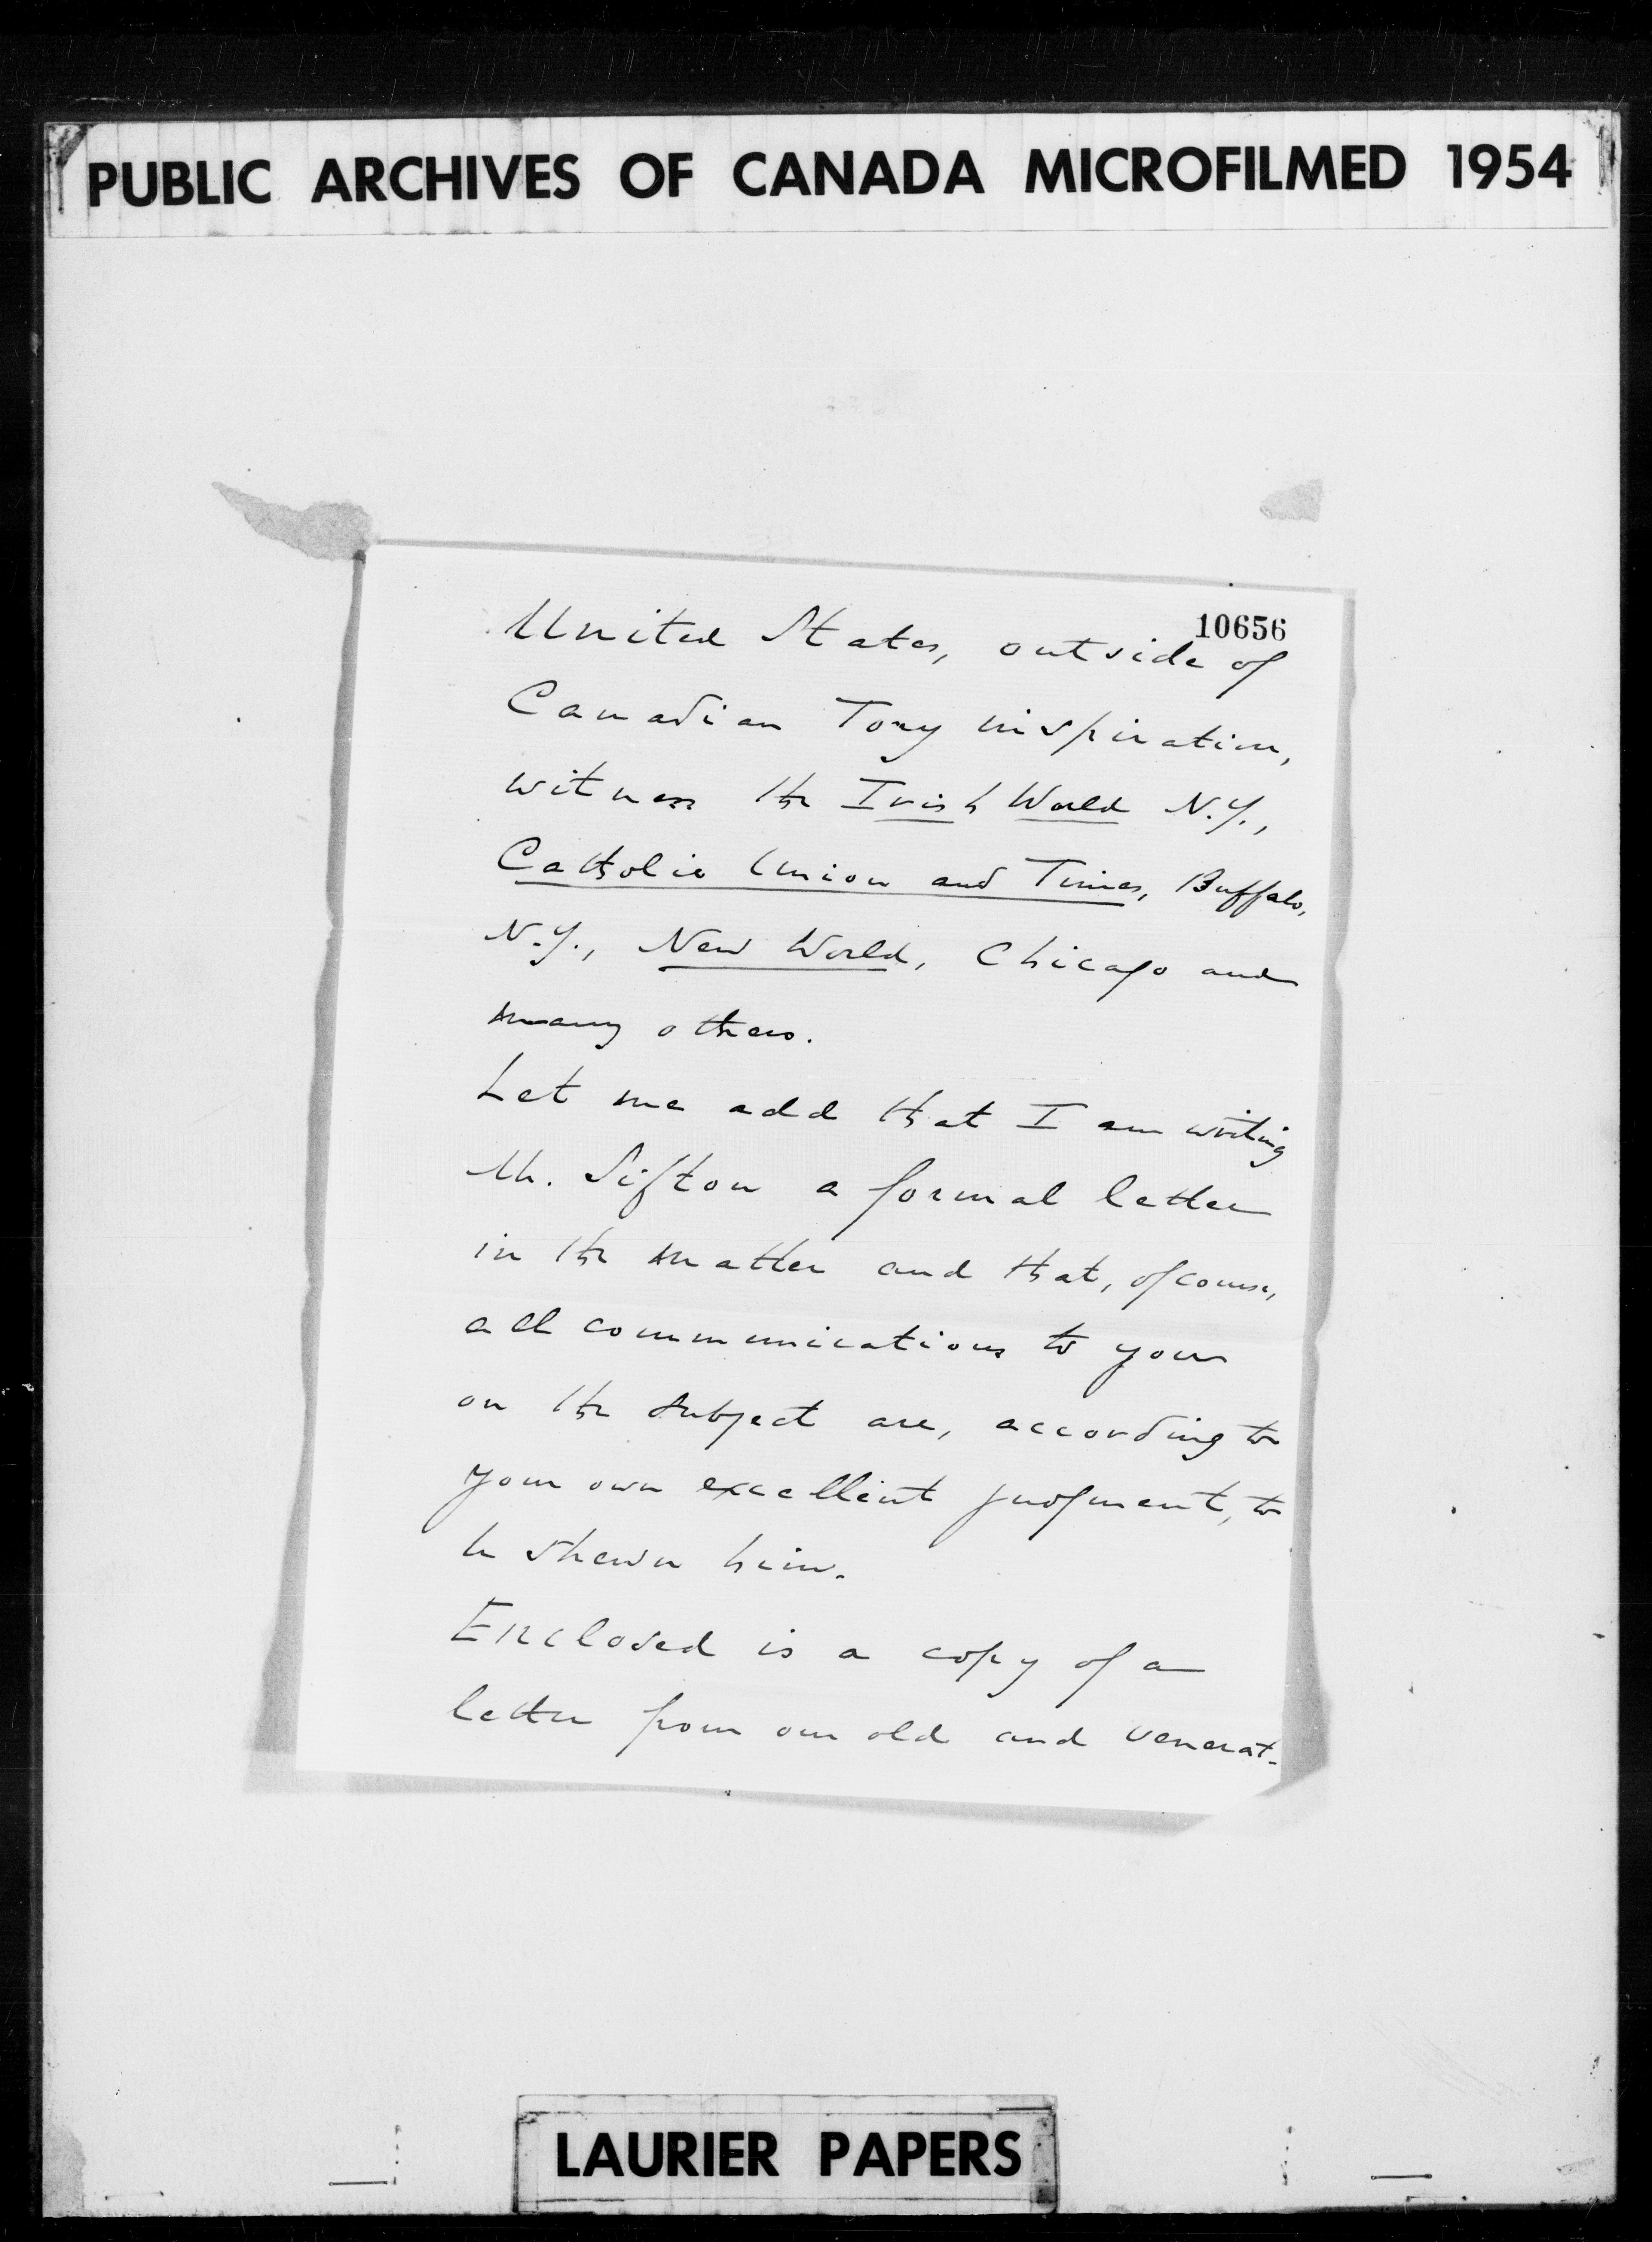 PUBLIC ARCHIVES OF CANADA MICROFILMED 1954
10656
United States, outside of
Canadian Tory inspiration,
witness the Irish World N.Y.,
Catholic Union and Times, Buffalo,
N.Y., New World, Chicago and
many others.
Let me add that I am writing
Mr. Sifton a formal letter
in the matter and that, of course,
all communications to you
on the subject are, according to
your own excellent judgment, to
be shewn him.
Enclosed is a copy of a
letter from our old and venerat-
LAURIER PAPERS